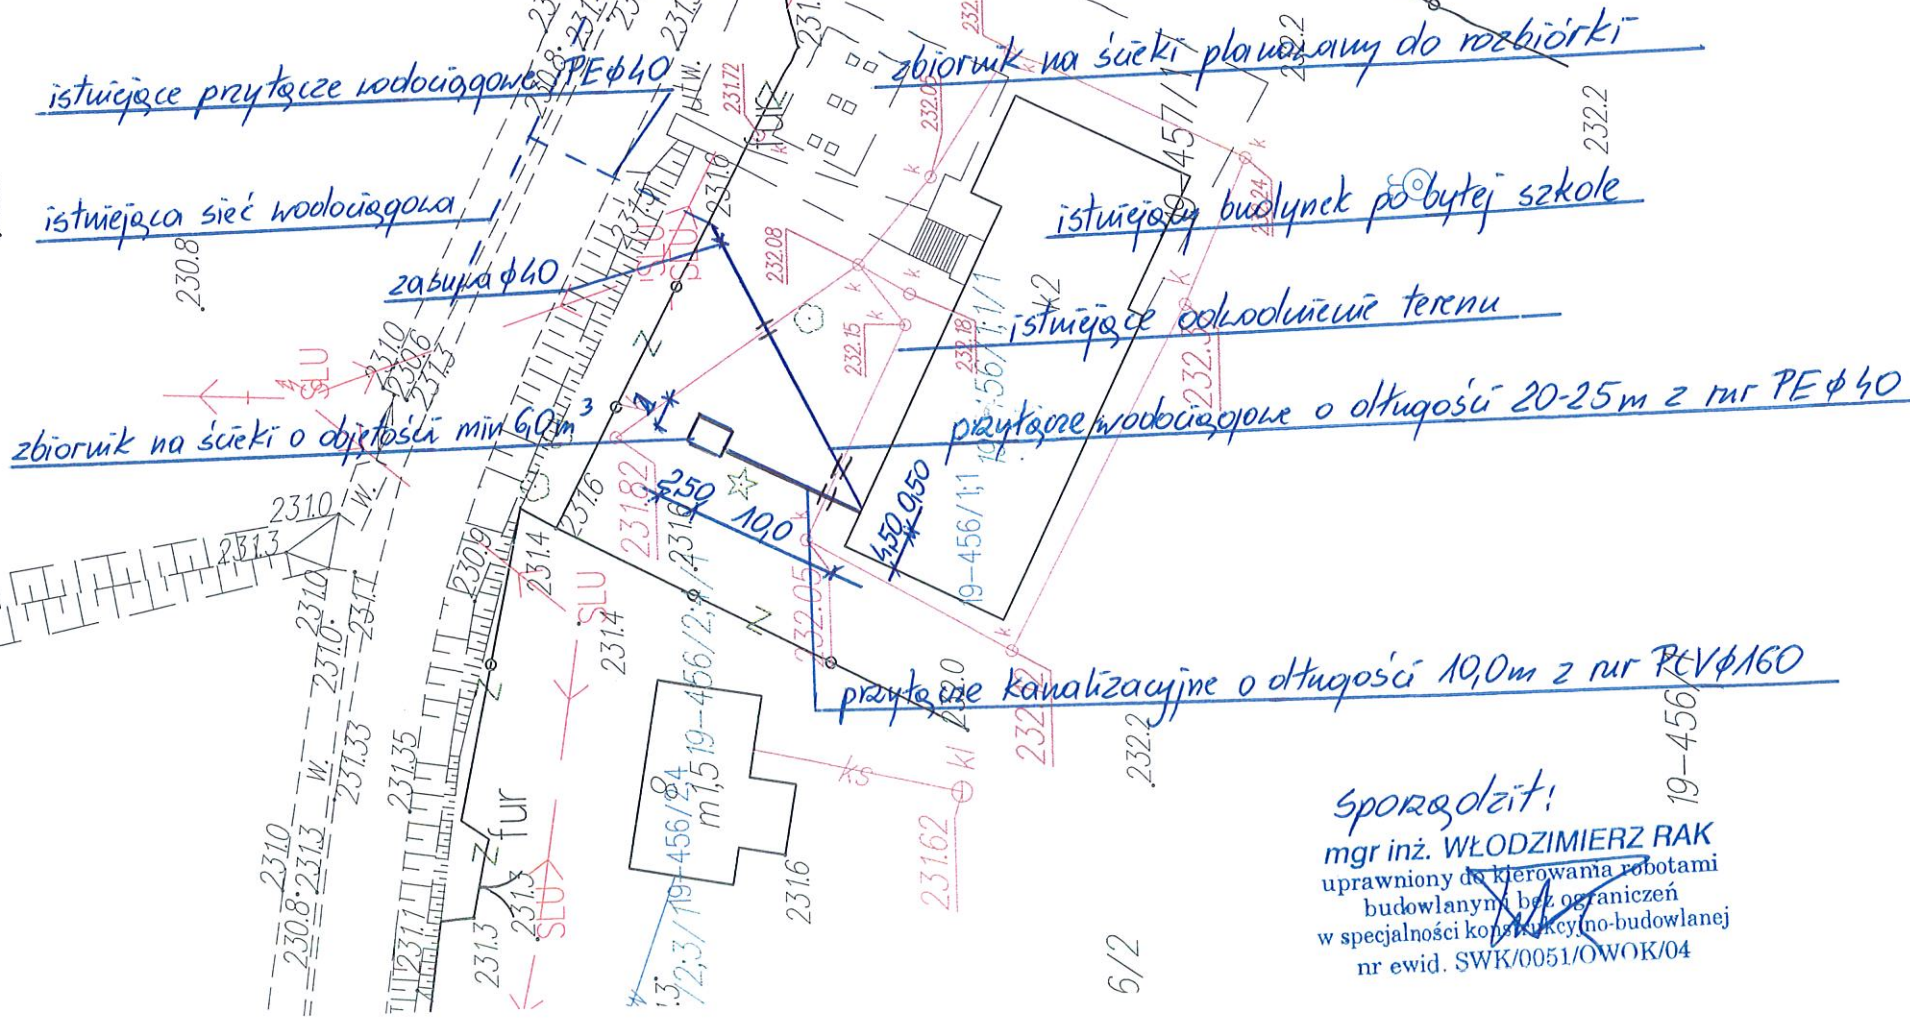 istniejące przyłącze wodociągowe PEϕ40
zbiornik na ścieki planowany do rozbiórki
istniejąca sieć wodociągowa
istniejący budynek po byłej szkole
zasuwa ϕ40
istniejące odwodnienie terenu
zbiornik na ścieki o objętości min 6,0m³
przyłącze wodociągowe o długości 20-25m z rur PEϕ40
przyłącze kanalizacyjne o długości 10,0m z rur PCVϕ160
2,50
10,0
4,50 0,50
231.72
232.2
232.2
230.8
231.6
232.08
232.15
232.18
k2
231.0
230.6
231.3
SLU
231.82
231.6
231.6
19-456/1;1
231.0
w.
231.3
230.9
231.4
SLU
231.4
232.05
232.0
232.2
231.0
231.0
231.1
w.
231.33
231.35
ks
k1
231.62
8
m1,5
fur
Z
231.0
230.8
231.3
231.1
231.3
231.3
SLU
231.6
6/2
Sporządził:
mgr inż. WŁODZIMIERZ RAK
uprawniony do kierowania robotami
budowlanymi bez ograniczeń
w specjalności konstrukcyjno-budowlanej
nr ewid. SWK/0051/OWOK/04